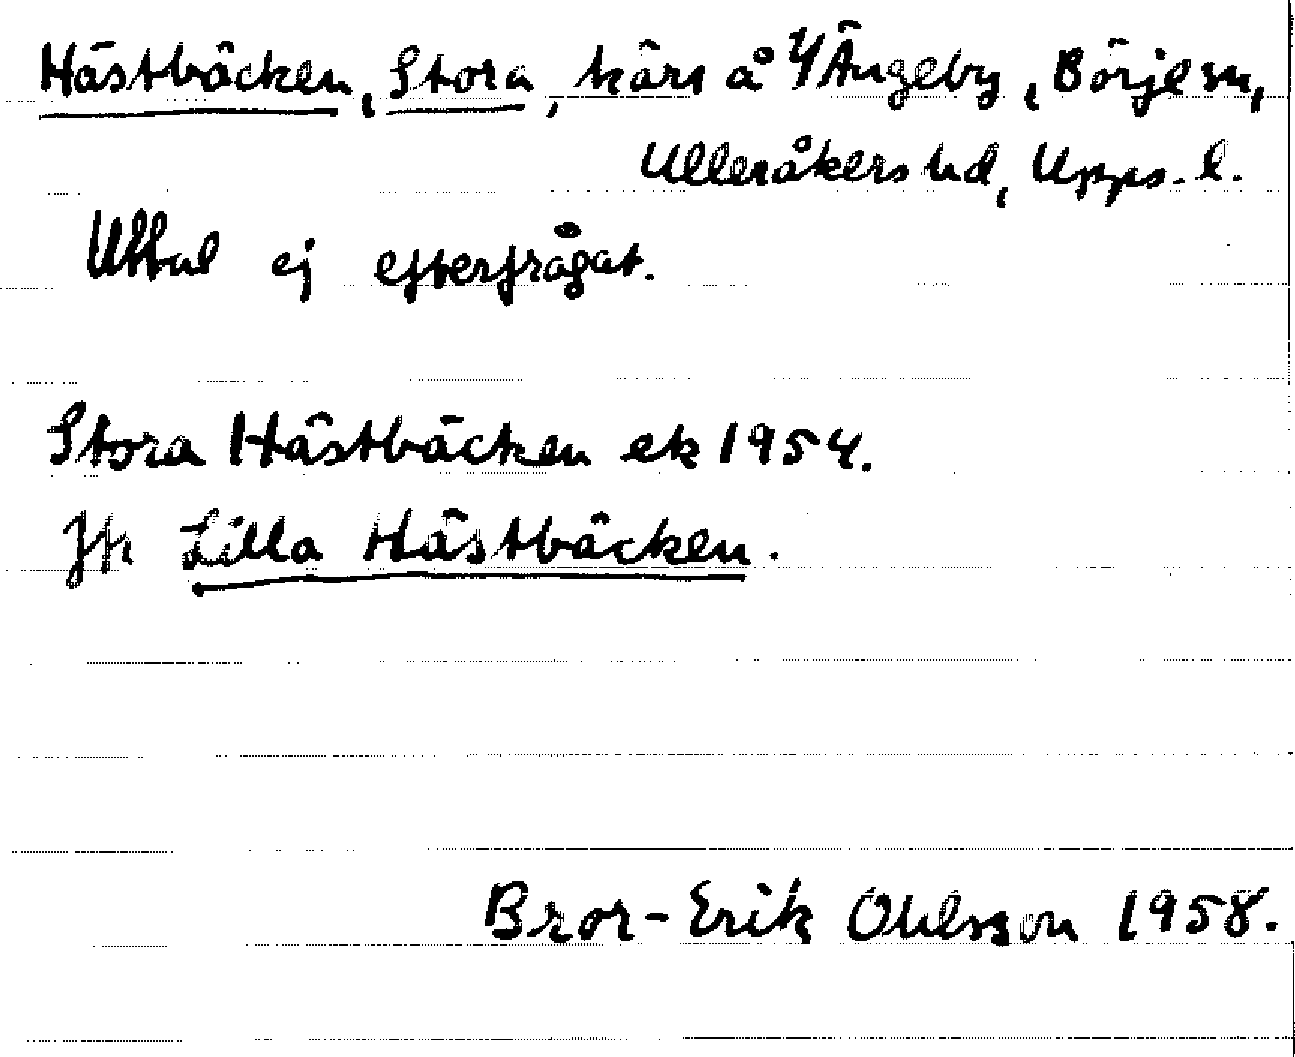 Hästbäcken, Stora, kärr å 4/Ängeby, Börje sn,
Ulleråkers hd, Upps. l.
Uttal ej efterfrågat.
Stora Hästbäcken ek 1954.
Jfr Lilla Hästbäcken.
Bror-Erik Ohlsson 1958.